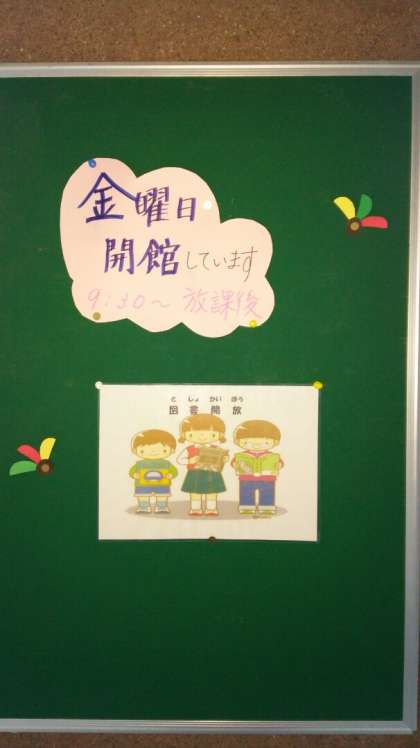 金曜日
開館しています
9:30～ 放課後
と しょ かい ほう
図書開放